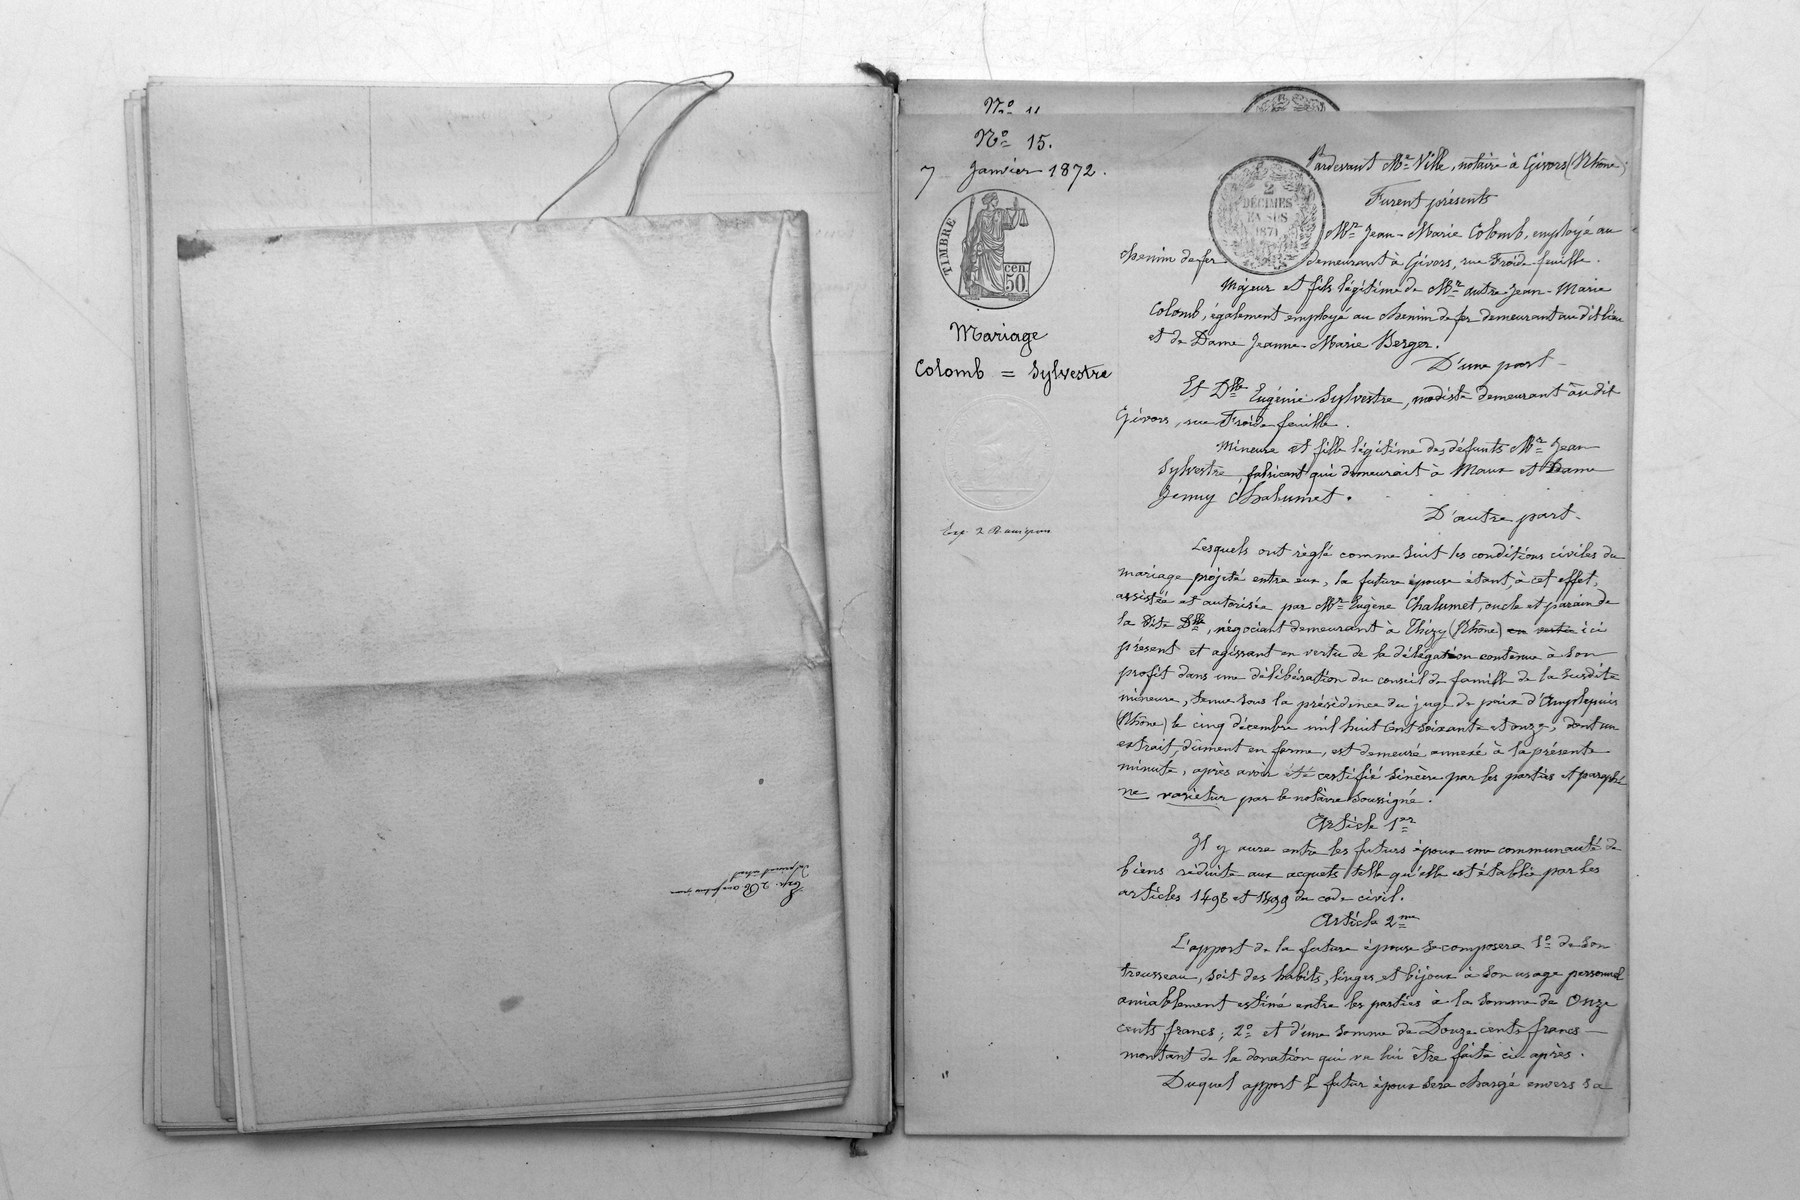 Nº 11
Nº 15.
7 Janvier 1872.
TIMBRE
cen.
50
Mariage
Colomb = Sylvestre
2
DÉCIMES
EN SUS
1871
Pardevant Me Ville, notaire à Givors (Rhône)
Furent présents
Mr Jean-Marie Colomb, employé au
chemin de fer demeurant à Givors, rue Froide feuille.
Majeur et fils légitime de Mr autre Jean-Marie
Colomb, également employé au chemin de fer demeurant au dit lieu
et de Dame Jeanne Marie Berger.
D'une part
Et Dlle Eugénie Sylvestre, modiste demeurant au dit
Givors, rue Froide feuille.
Mineure et fille légitime des défunts Mr Jean
Sylvestre, fabricant qui demeurait à Maux et Dame
Jenny Chalumet.
D'autre part.
Lesquels ont règlé comme suit les conditions civiles du
mariage projeté entre eux, la future épouse étant, à cet effet,
assistée et autorisée par Mr Eugène Chalumet, oncle et parain de
la dite Dlle, négociant demeurant à Thizy (Rhône) en vertu ici
présent et agissant en vertu de la délégation contenue à son
profit dans une délibération du conseil de famille de la susdite
mineure, tenue sous la présidence du juge de paix d'Amplepuis
(Rhône) le cinq décembre mil huit cent soixante et onze, dont un
extrait, dûment en forme, est demeuré annexé à la présente
minute, après avoir été certifié sincère par les parties et paraphé
ne varietur par le notaire soussigné.
Article 1er
Il y aura entre les futurs époux une communauté de
biens réduite aux acquets telle qu'elle est établie par les
articles 1498 et 1499 du code civil.
Article 2me
L'apport de la future épouse se composera 1º de son
trousseau, soit des habits, linges et bijoux à son usage personnel
amiablement estimé entre les parties à la somme de Onze
cents francs; 2º et d'une somme de Douze cents francs
montant de la donation qui va lui être faite ci-après.
Duquel apport le futur époux sera chargé envers sa